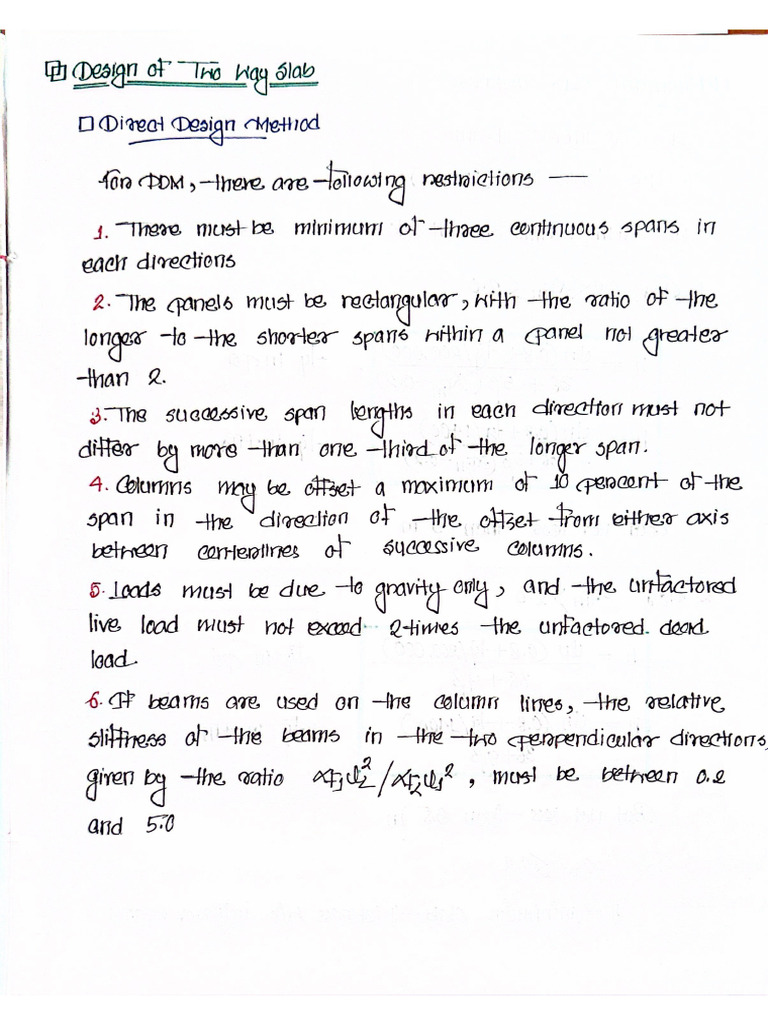 Design of Two Way Slab
Direct Design Method
For DDM, there are following restrictions —
1. There must be minimum of three continuous spans in
each directions
2. The panels must be rectangular, with the ratio of the
longer to the shorter spans within a panel not greater
than 2.
3. The successive span lengths in each direction must not
differ by more than one third of the longer span.
4. Columns may be offset a maximum of 10 percent of the
span in the direction of the offset from either axis
between centerlines of successive columns.
5. Loads must be due to gravity only, and the unfactored
live load must not exceed 2 times the unfactored dead
load.
6. If beams are used on the column lines, the relative
stiffness of the beams in the two perpendicular directions,
given by the ratio αf₁l₂²/αf₂l₁², must be between 0.2
and 5.0